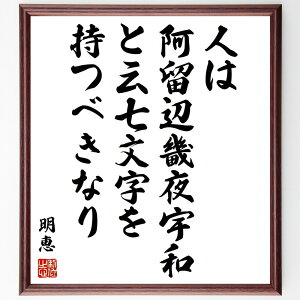 人は
阿留辺畿夜宇和
と云七文字を
持つべきなり
明恵